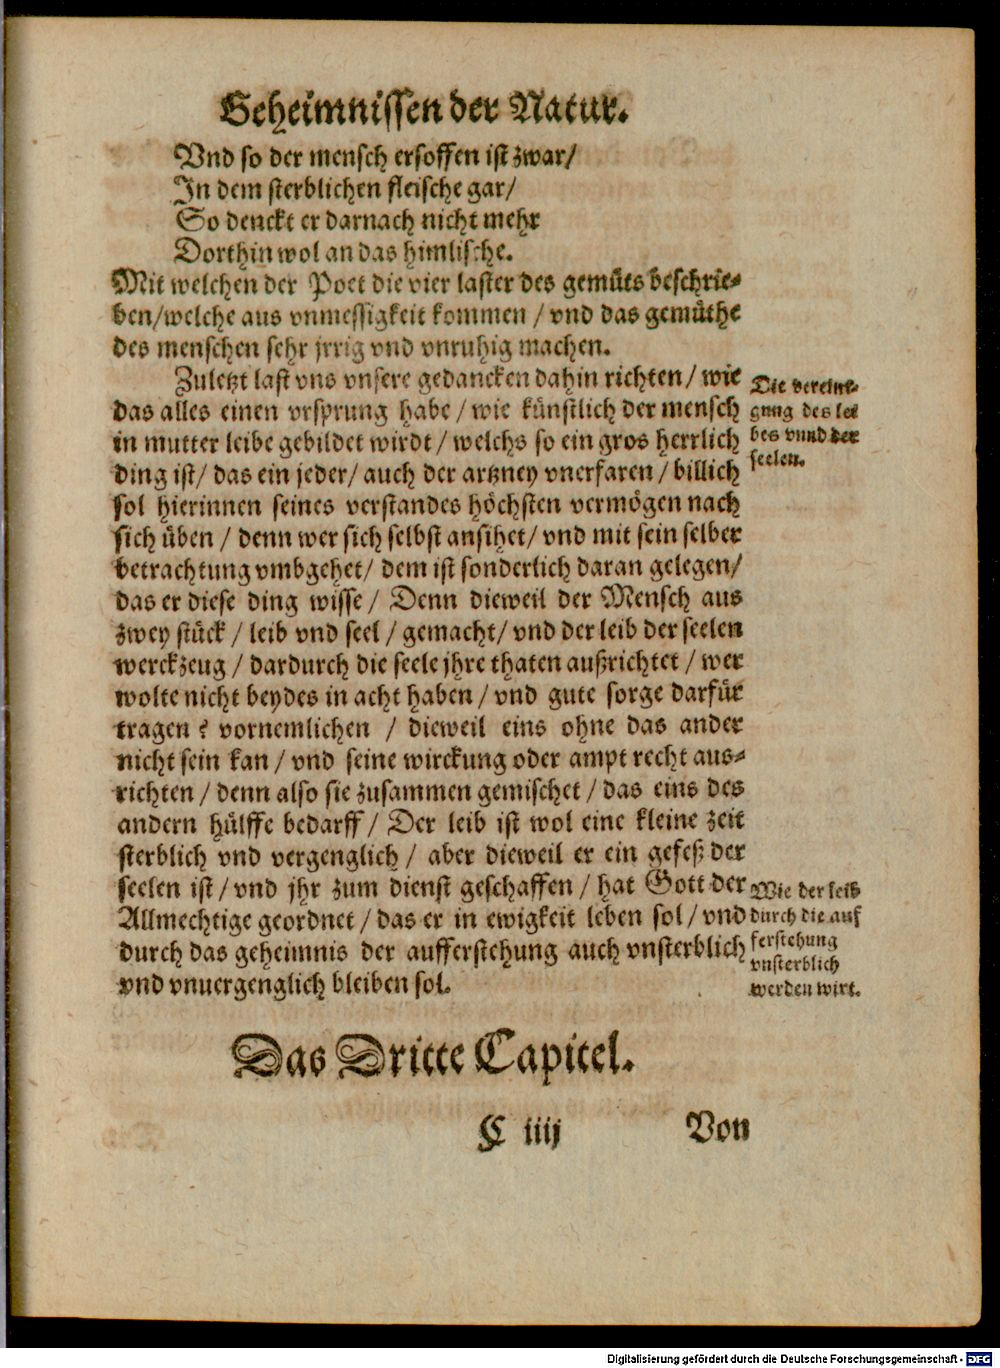 Geheimnissen der Natur.
Vnd so der mensch ersoffen ist zwar/
In dem sterblichen fleische gar/
So denckt er darnach nicht mehr
Dorthin wol an das himlische.
Mit welchen der Poet die vier laster des gemüts beschrie-
ben/welche aus vnmessigkeit kommen / vnd das gemüthe
des menschen sehr jrrig vnd vnruhig machen.
Zuletzt last vns vnsere gedancken dahin richten / wie
das alles einen vrsprung habe / wie künstlich der mensch
in mutter leibe gebildet wirdt / welchs so ein gros herrlich
ding ist/ das ein jeder/ auch der artzney vnerfaren / billich
sol hierinnen seines verstandes höchsten vermögen nach
sich üben / denn wer sich selbst ansihet/ vnd mit sein selber
betrachtung vmbgehet/ dem ist sonderlich daran gelegen/
das er diese ding wisse / Denn dieweil der Mensch aus
zwey stück / leib vnd seel / gemacht/ vnd der leib der seelen
werckzeug / dardurch die seele jhre thaten außrichtet / wer
wolte nicht beydes in acht haben / vnd gute sorge darfür
tragen ? vornemlichen / dieweil eins ohne das ander
nicht sein kan / vnd seine wirckung oder ampt recht aus-
richten / denn also sie zusammen gemischet / das eins des
andern hülffe bedarff / Der leib ist wol eine kleine zeit
sterblich vnd vergenglich / aber dieweil er ein gefeß der
seelen ist / vnd jhr zum dienst geschaffen / hat Gott der
Allmechtige geordnet / das er in ewigkeit leben sol / vnd
durch das geheimnis der aufferstehung auch vnsterblich
vnd vnuergenglich bleiben sol.
Die vereini-
gung des lei
bes vnnd der
seelen.
Wie der leib
durch die auf
ferstehung
vnsterblich
werden wirt.
Das Dritte Capitel.
C iiij Von
Digitalisierung gefördert durch die Deutsche Forschungsgemeinschaft - DFG